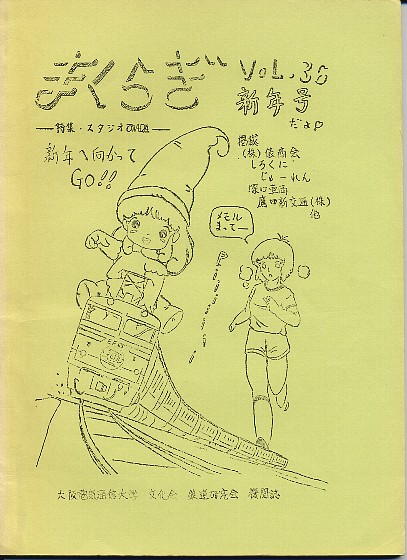 まくらぎ VOL.38
新年号
だョ♡
特集・スタジオ
新年へ向かって
GO!!
掲載
(株)俵商会
しろくに
じゅーれん
塚口車両
鷹取新交通(株)
他
メモル
まってー
EF65
大阪電気通信大学 文化会 鉄道研究会 機関誌